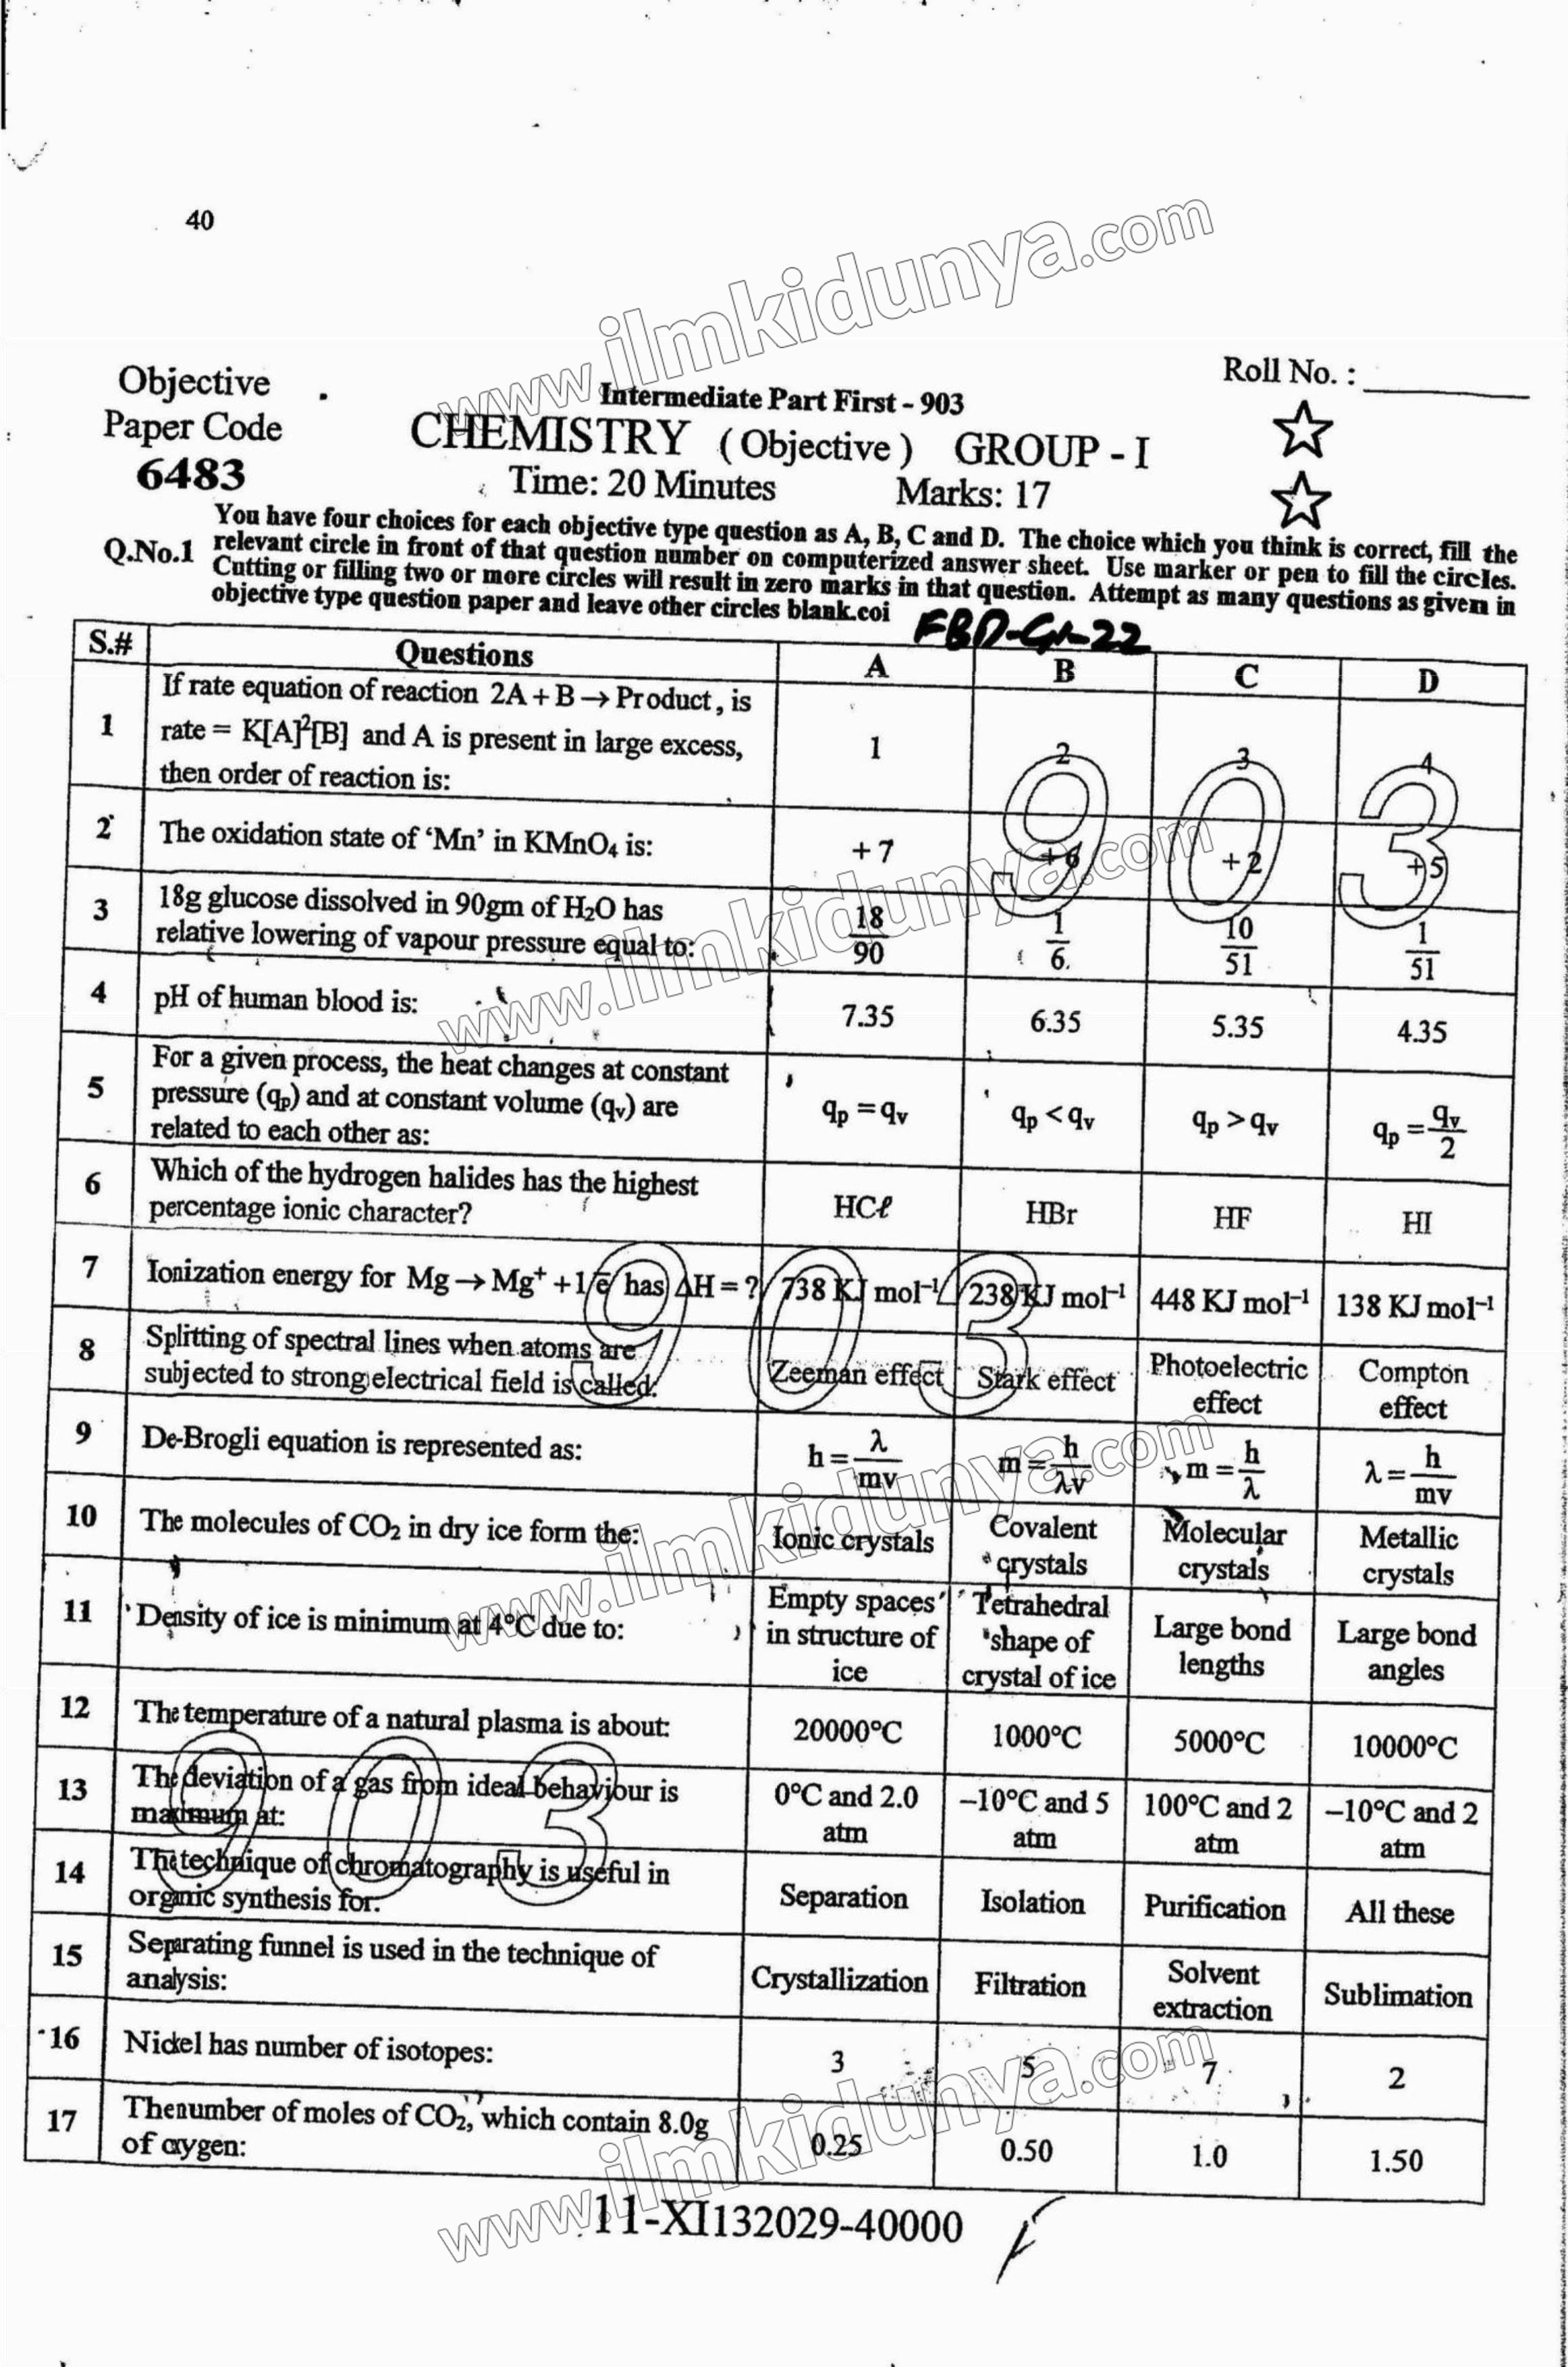 40
Objective
Paper Code
6483
Intermediate Part First - 903
Roll No. : ________
CHEMISTRY ( Objective ) GROUP - I
Time: 20 Minutes Marks: 17
Q.No.1 You have four choices for each objective type question as A, B, C and D. The choice which you think is correct, fill the
relevant circle in front of that question number on computerized answer sheet. Use marker or pen to fill the circles.
Cutting or filling two or more circles will result in zero marks in that question. Attempt as many questions as given in
objective type question paper and leave other circles blank.coi
FBD-G1-22
S.# Questions A B C D
1 If rate equation of reaction 2A + B → Product, is
rate = K[A]²[B] and A is present in large excess,
then order of reaction is: 1 2 3 4
2 The oxidation state of ‘Mn’ in KMnO₄ is: +7 +6 +2 +5
3 18g glucose dissolved in 90gm of H₂O has
relative lowering of vapour pressure equal to: 18/90 1/6. 10/51 1/51
4 pH of human blood is: 7.35 6.35 5.35 4.35
5 For a given process, the heat changes at constant
pressure (qₚ) and at constant volume (qᵥ) are
related to each other as: qₚ = qᵥ qₚ < qᵥ qₚ > qᵥ qₚ = qᵥ/2
6 Which of the hydrogen halides has the highest
percentage ionic character? HCℓ HBr HF HI
7 Ionization energy for Mg → Mg⁺ + 1e̅ has ΔH = ? 738 KJ mol⁻¹ 238 KJ mol⁻¹ 448 KJ mol⁻¹ 138 KJ mol⁻¹
8 Splitting of spectral lines when atoms are
subjected to strong electrical field is called: Zeeman effect Stark effect Photoelectric effect Compton effect
9 De-Brogli equation is represented as: h = λ/mv m = h/λv m = h/λ λ = h/mv
10 The molecules of CO₂ in dry ice form the: Ionic crystals Covalent crystals Molecular crystals Metallic crystals
11 Density of ice is minimum at 4°C due to: Empty spaces in structure of ice Tetrahedral shape of crystal of ice Large bond lengths Large bond angles
12 The temperature of a natural plasma is about: 20000°C 1000°C 5000°C 10000°C
13 The deviation of a gas from ideal behaviour is
maximum at: 0°C and 2.0 atm –10°C and 5 atm 100°C and 2 atm –10°C and 2 atm
14 The technique of chromatography is useful in
organic synthesis for: Separation Isolation Purification All these
15 Separating funnel is used in the technique of
analysis: Crystallization Filtration Solvent extraction Sublimation
16 Nickel has number of isotopes: 3 5 7 2
17 The number of moles of CO₂, which contain 8.0g
of oxygen: 0.25 0.50 1.0 1.50
11-XI132029-40000
903
903
903
www.ilmkidunya.com
www.ilmkidunya.com
www.ilmkidunya.com
www.ilmkidunya.com